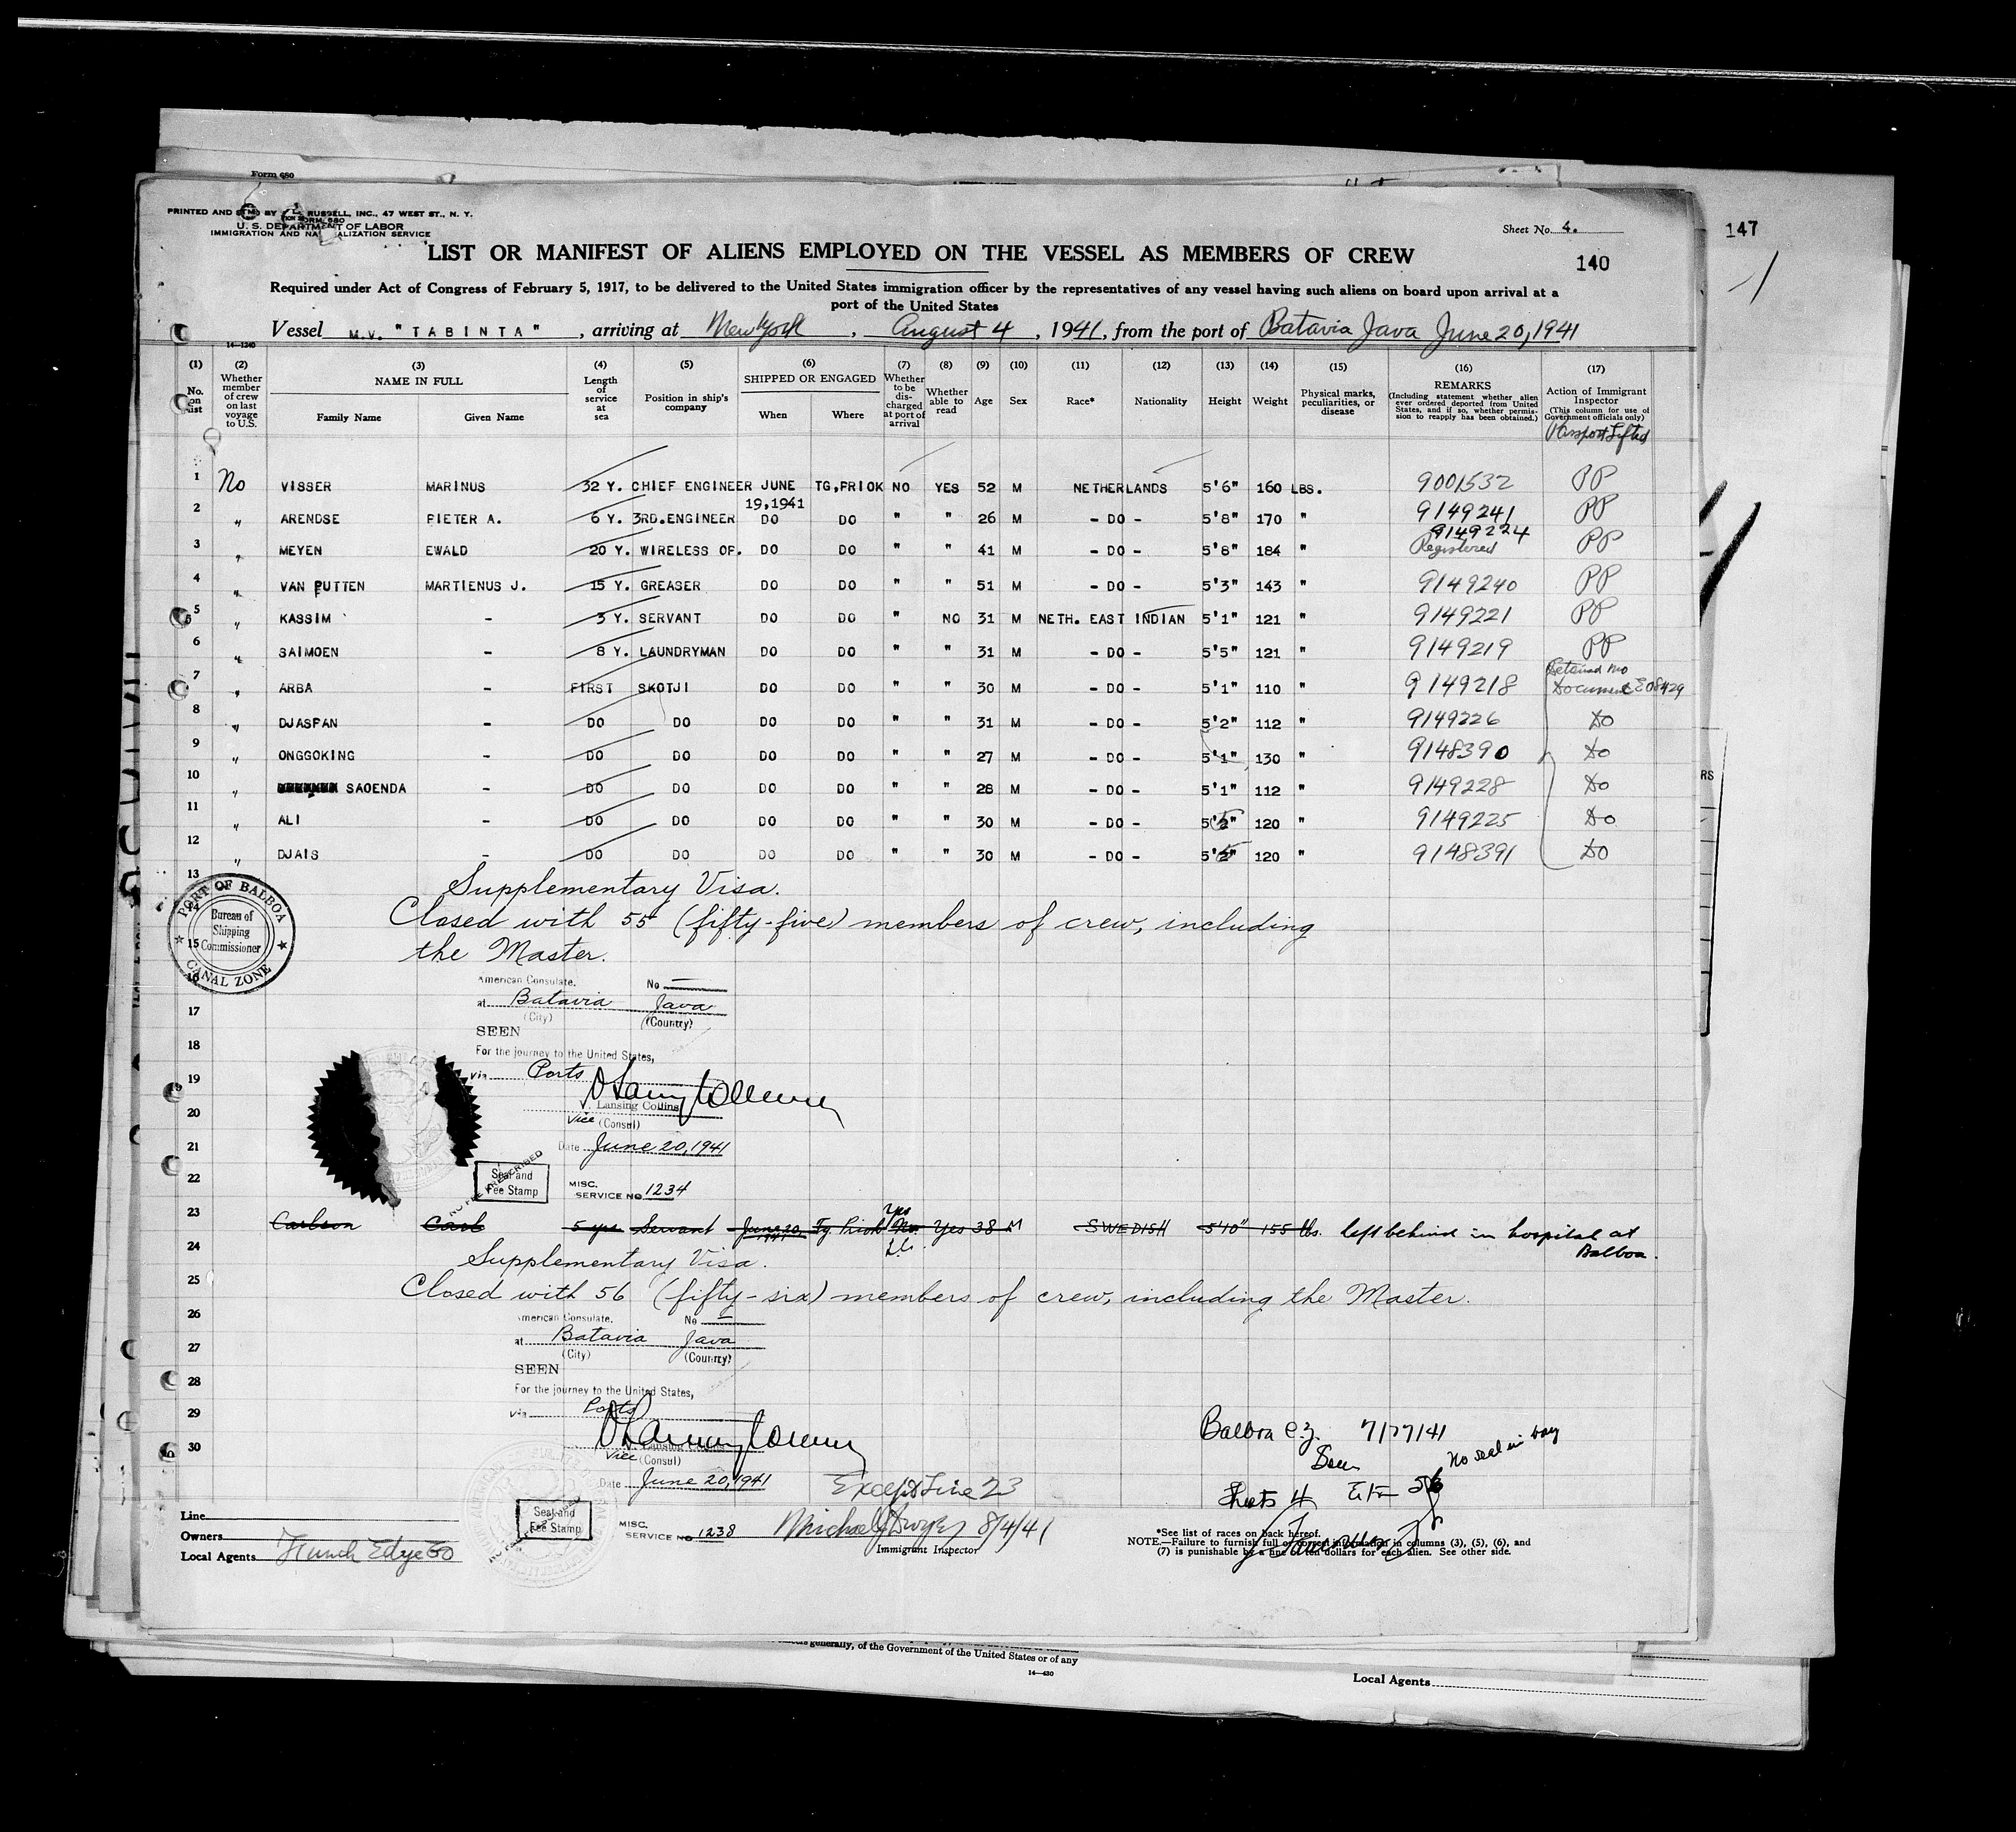 Form 680
PRINTED AND BY RUSSELL, INC., 47 WEST ST., N. Y.
U. S. DEPARTMENT OF LABOR
IMMIGRATION AND NATURALIZATION SERVICE
Sheet No. 4.
147
LIST OR MANIFEST OF ALIENS EMPLOYED ON THE VESSEL AS MEMBERS OF CREW
140
Required under Act of Congress of February 5, 1917, to be delivered to the United States immigration officer by the representatives of any vessel having such aliens on board upon arrival at a
port of the United States
Vessel M.V. "TABINTA", arriving at New York, August 4, 1941, from the port of Batavia Java June 20, 1941
14-1240
(1) No. on list (2) Whether member of crew on last voyage to U.S. (3) NAME IN FULL Family Name Given Name (4) Length of service at sea (5) Position in ship's company (6) SHIPPED OR ENGAGED When Where (7) Whether to be discharged at port of arrival (8) Whether able to read (9) Age (10) Sex (11) Race* (12) Nationality (13) Height (14) Weight (15) Physical marks, peculiarities, or disease (16) REMARKS (Including statement whether alien ever ordered deported from United States, and if so, whether permission to reapply has been obtained.) (17) Action of Immigrant Inspector (This column for use of Government officials only)
Passport Lifted
1 No VISSER MARINUS 32 Y. CHIEF ENGINEER JUNE 19,1941 TG,PRIOK NO YES 52 M NETHERLANDS 5'6" 160 LBS. 9001532 PP
2 " ARENDSE PIETER A. 6 Y. 3RD.ENGINEER DO DO " " 26 M - DO - 5'8" 170 " 9149241 PP
3 " MEYEN EWALD 20 Y. WIRELESS OP. DO DO " " 41 M - DO - 5'8" 184 " 9149224 Registered PP
4 " VAN PUTTEN MARTIENUS J. 15 Y. GREASER DO DO " " 51 M - DO - 5'3" 143 " 9149240 PP
5 " KASSIM - 3 Y. SERVANT DO DO " NO 31 M NETH. EAST INDIAN 5'1" 121 " 9149221 PP
6 " SAIMOEN - 8 Y. LAUNDRYMAN DO DO " " 31 M - DO - 5'5" 121 " 9149219 PP
7 " ARBA - FIRST SKOTJI DO DO " " 30 M - DO - 5'1" 110 " 9149218 Detained no Document E08429
8 " DJASPAN - DO DO DO DO " " 31 M - DO - 5'2" 112 " 9149226 Do
9 " ONGGOKING - DO DO DO DO " " 27 M - DO - 5'1" 130 " 9148390 Do
10 " SAOENDA - DO DO DO DO " " 28 M - DO - 5'1" 112 " 9149228 Do
11 " ALI - DO DO DO DO " " 30 M - DO - 5'2" 120 " 9149225 Do
12 " DJAIS - DO DO DO DO " " 30 M - DO - 5'2" 120 " 9148391 Do
13 Supplementary Visa.
14 Closed with 55 (fifty-five) members of crew, including
15 the Master.
PORT OF BALBOA
Bureau of
Shipping
Commissioner
CANAL ZONE
American Consulate. No
at Batavia Java
(City) (Country)
17
SEEN
18
For the journey to the United States,
19
via Ports
20
V. Lansing Collins
Vice (Consul)
21
Date June 20, 1941
Seal and
Fee Stamp
22
MISC.
SERVICE NO 1234
23 Carlson Carl 5 yrs Servant June 20, 1941 Tg. Priok Yes No. Yes 38 M SWEDISH 5'10" 155 lbs. left behind in hospital at
Balboa.
24 Supplementary Visa.
25 Closed with 56 (fifty-six) members of crew, including the Master.
26
American Consulate. No
at Batavia Java
27
(City) (Country)
SEEN
28
For the journey to the United States,
29
via Ports
30
V. Lansing Collins
Vice (Consul)
Date June 20, 1941
Seal and
Fee Stamp
MISC.
SERVICE NO 1238
Balboa C.Z. 7/17/41
Seen
No seal in bag
Sheets 4
Except Line 23
8/4/41
Immigrant Inspector
Line
Owners
Local Agents Funch Edye Co
*See list of races on back hereof.
NOTE.—Failure to furnish full or correct information in columns (3), (5), (6), and
(7) is punishable by a fine of ten dollars for each alien. See other side.
RS
generally, of the Government of the United States or of any
14-430
Local Agents